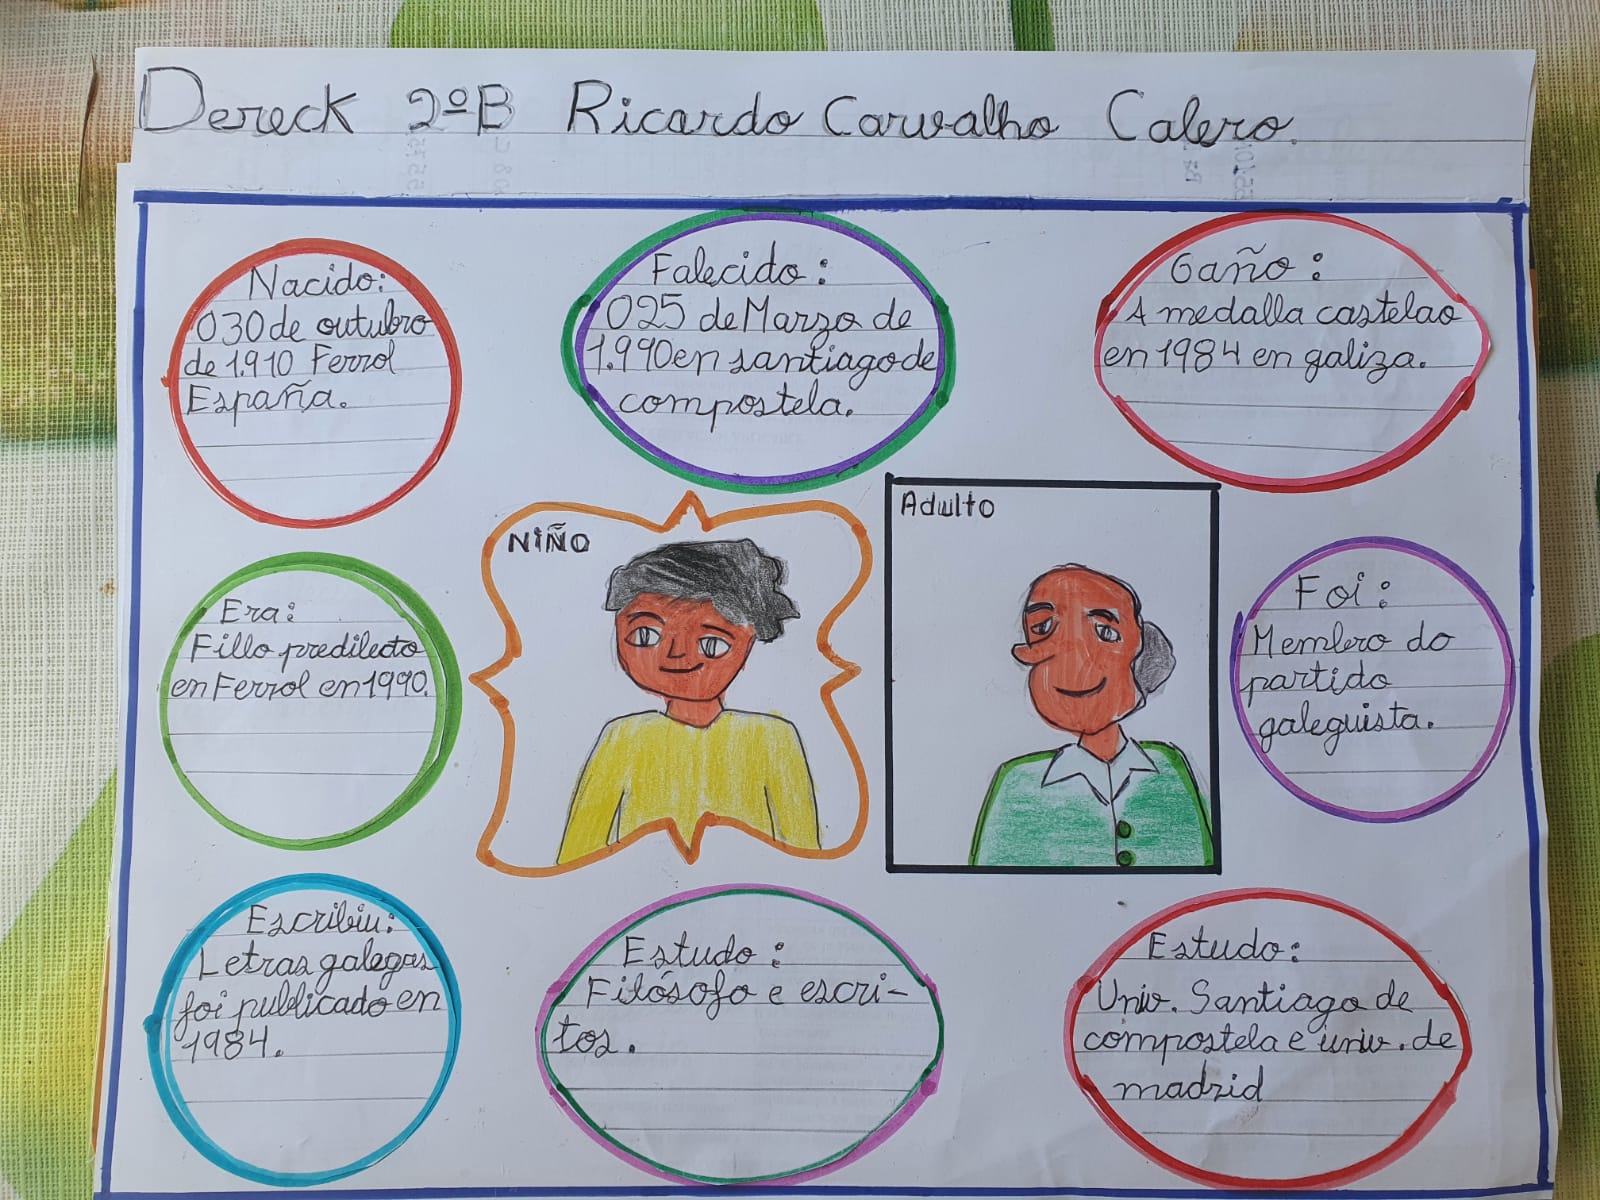 Dereck 2ºB Ricardo Carvalho Calero.
Nacido:
O 30 de outubro
de 1.910 Ferrol
España.
Falecido:
O 25 de Marzo de
1.990 en santiago de
compostela.
Gaño:
A medalla castelao
en 1984 en galiza.
Era:
Fillo predilecto
en Ferrol en 1990.
NIÑO
Adulto
Foi:
Membro do
partido
galeguista.
Escribiu:
Letras galegas
foi publicado en
1984.
Estudo:
Filósofo e escri-
tos.
Estudo:
Univ. Santiago de
compostela e univ. de
madrid